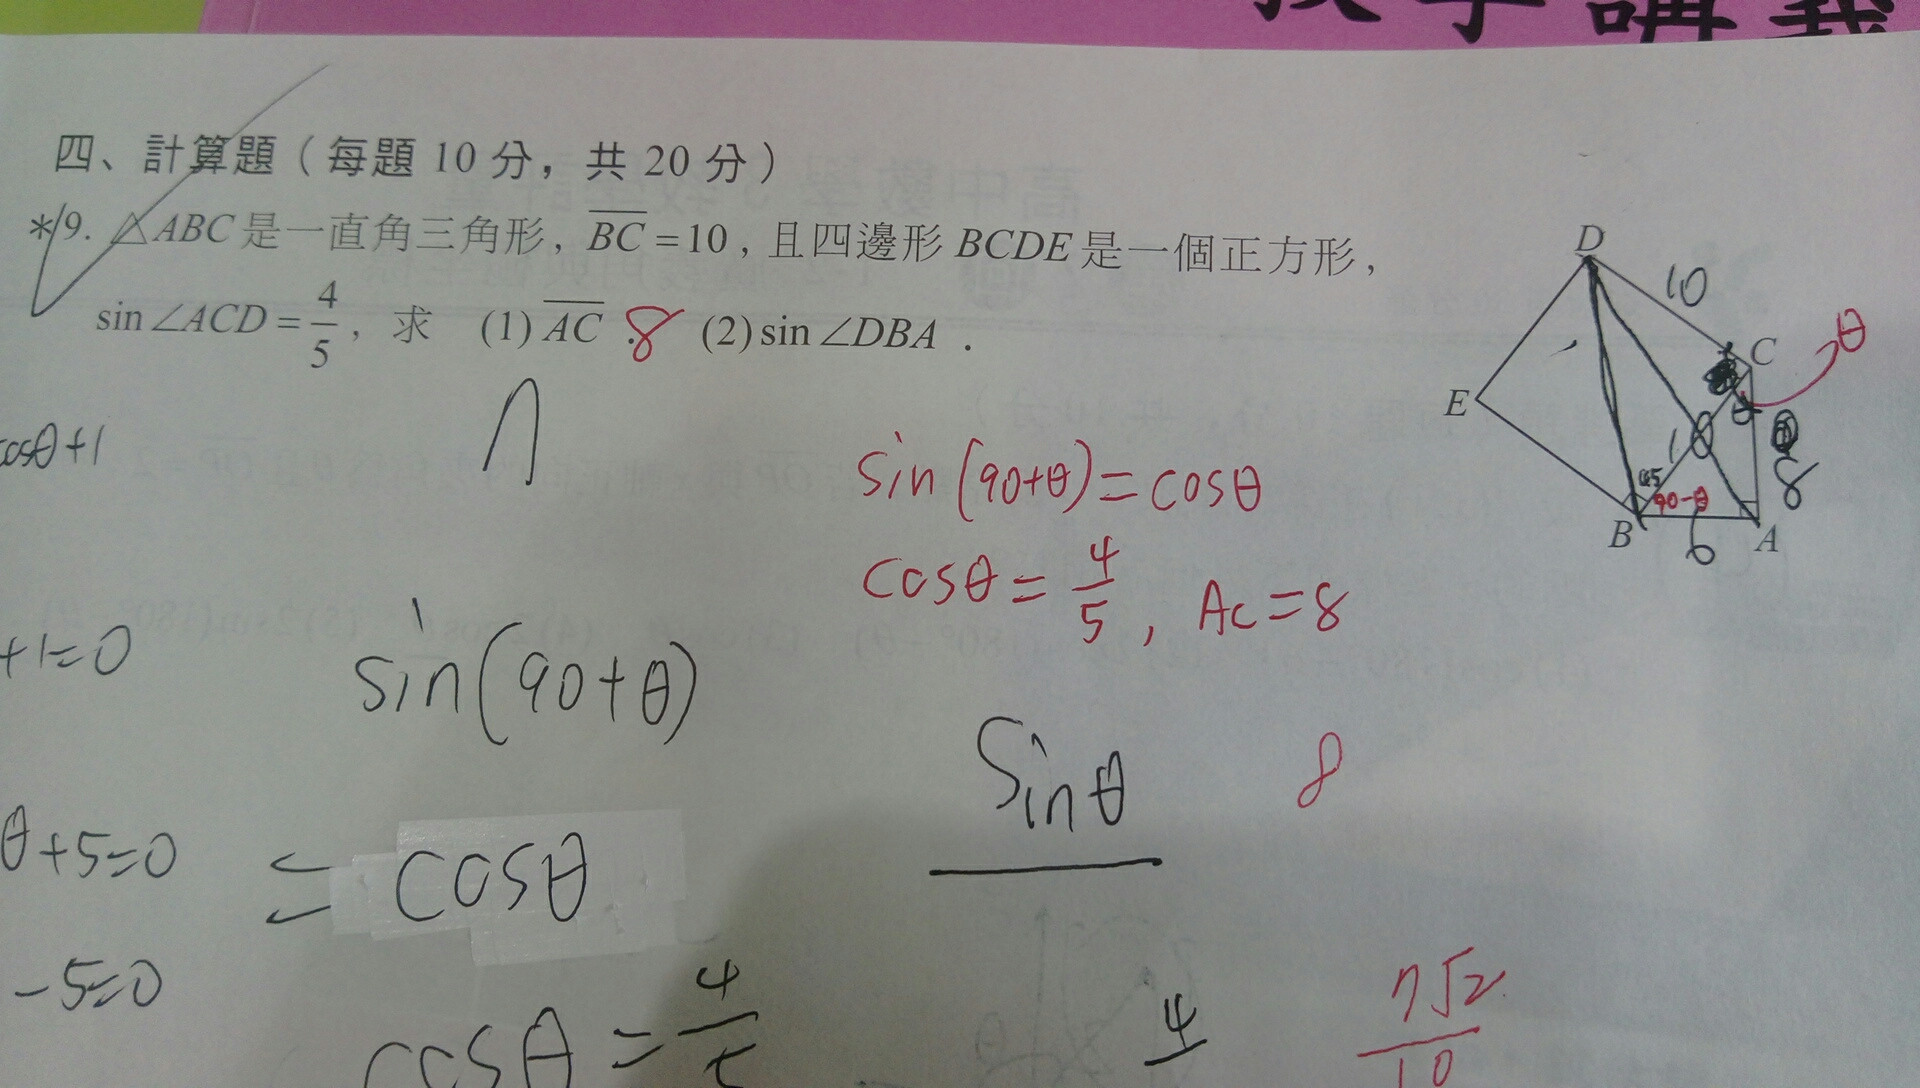 教學講義
四、計算題（每題 10 分，共 20 分）
*9. △ABC 是一直角三角形，BC = 10，且四邊形 BCDE 是一個正方形，
sin∠ACD = 4/5，求 (1) AC 8 (2) sin∠DBA．
D
10
C
θ
E
10
8
45
90-θ
B
6
A
cosθ+1
sin(90+θ)=cosθ
cosθ=4/5, AC=8
+1=0
sin(90+θ)
sinθ
8
θ+5=0
=cosθ
-5=0
cosθ=4/5
4
7√2/10